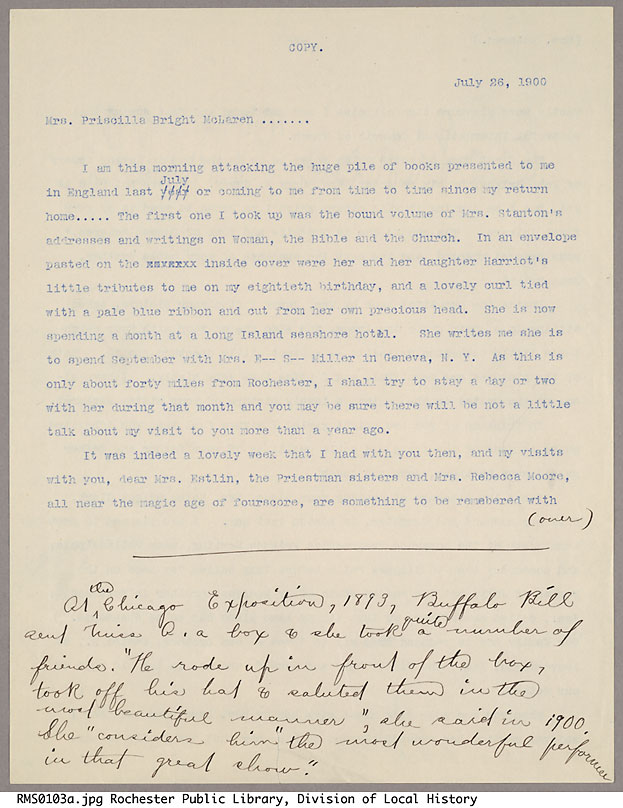 COPY.
July 26, 1900
Mrs. Priscilla Bright McLaren .......
I am this morning attacking the huge pile of books presented to me
July
in England last year or coming to me from time to time since my return
home..... The first one I took up was the bound volume of Mrs. Stanton's
addresses and writings on Woman, the Bible and the Church. In an envelope
pasted on the xxxxxxx inside cover were her and her daughter Harriot's
little tributes to me on my eightieth birthday, and a lovely curl tied
with a pale blue ribbon and cut from her own precious head. She is now
spending a month at a long Island seashore hotel. She writes me she is
to spend September with Mrs. E-- S-- Miller in Geneva, N. Y. As this is
only about forty miles from Rochester, I shall try to stay a day or two
with her during that month and you may be sure there will be not a little
talk about my visit to you more than a year ago.
It was indeed a lovely week that I had with you then, and my visits
with you, dear Mrs. Estlin, the Priestman sisters and Mrs. Rebecca Moore,
all near the magic age of fourscore, are something to be remebered with
(over)
At the Chicago Exposition, 1893, Buffalo Bill
sent Miss A. a box & she took quite a number of
friends. "He rode up in front of the box,
took off his hat & saluted them in the
most beautiful manner", she said in 1900.
She "considers him "the most wonderful performer
in that great show."
RMS0103a.jpg Rochester Public Library, Division of Local History